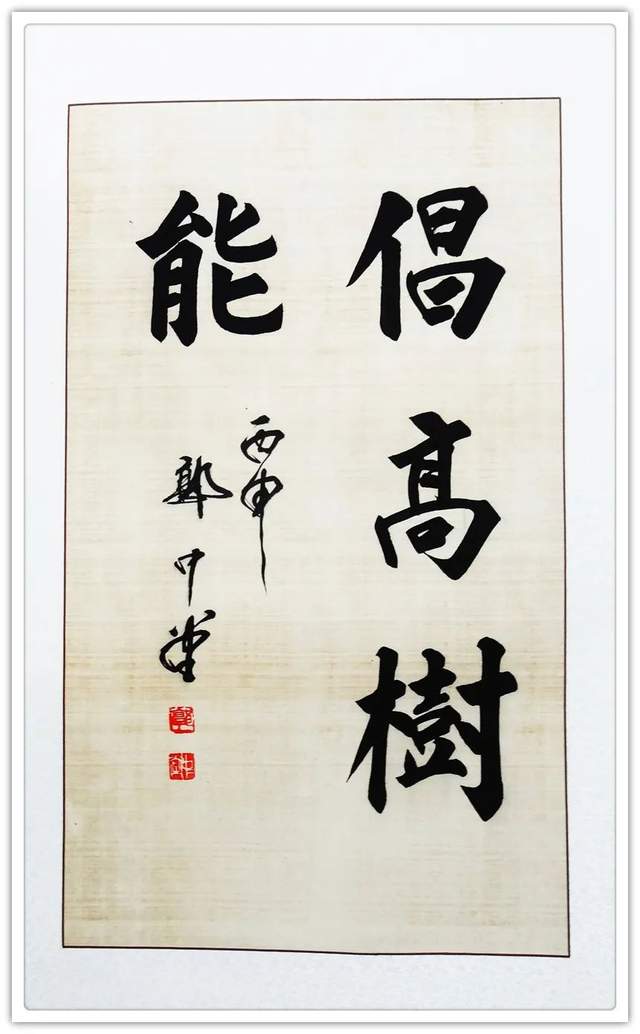 倡高樹
能
丙申
郭中